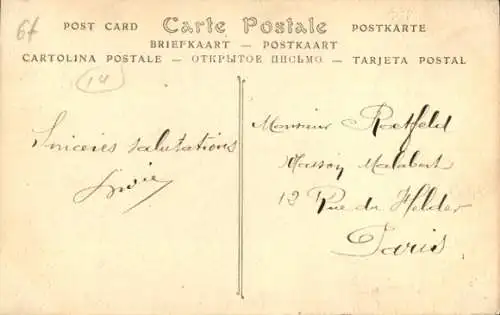 6f
POST CARD Carte Postale POSTKARTE
BRIEFKAART — POSTKAART
CARTOLINA POSTALE — ОТКРЫТОЕ ПИСЬМО — TARJETA POSTAL
14
Sincères salutations
Monsieur Rootfeld
Maison Malabert
12 Rue du Helder
Paris